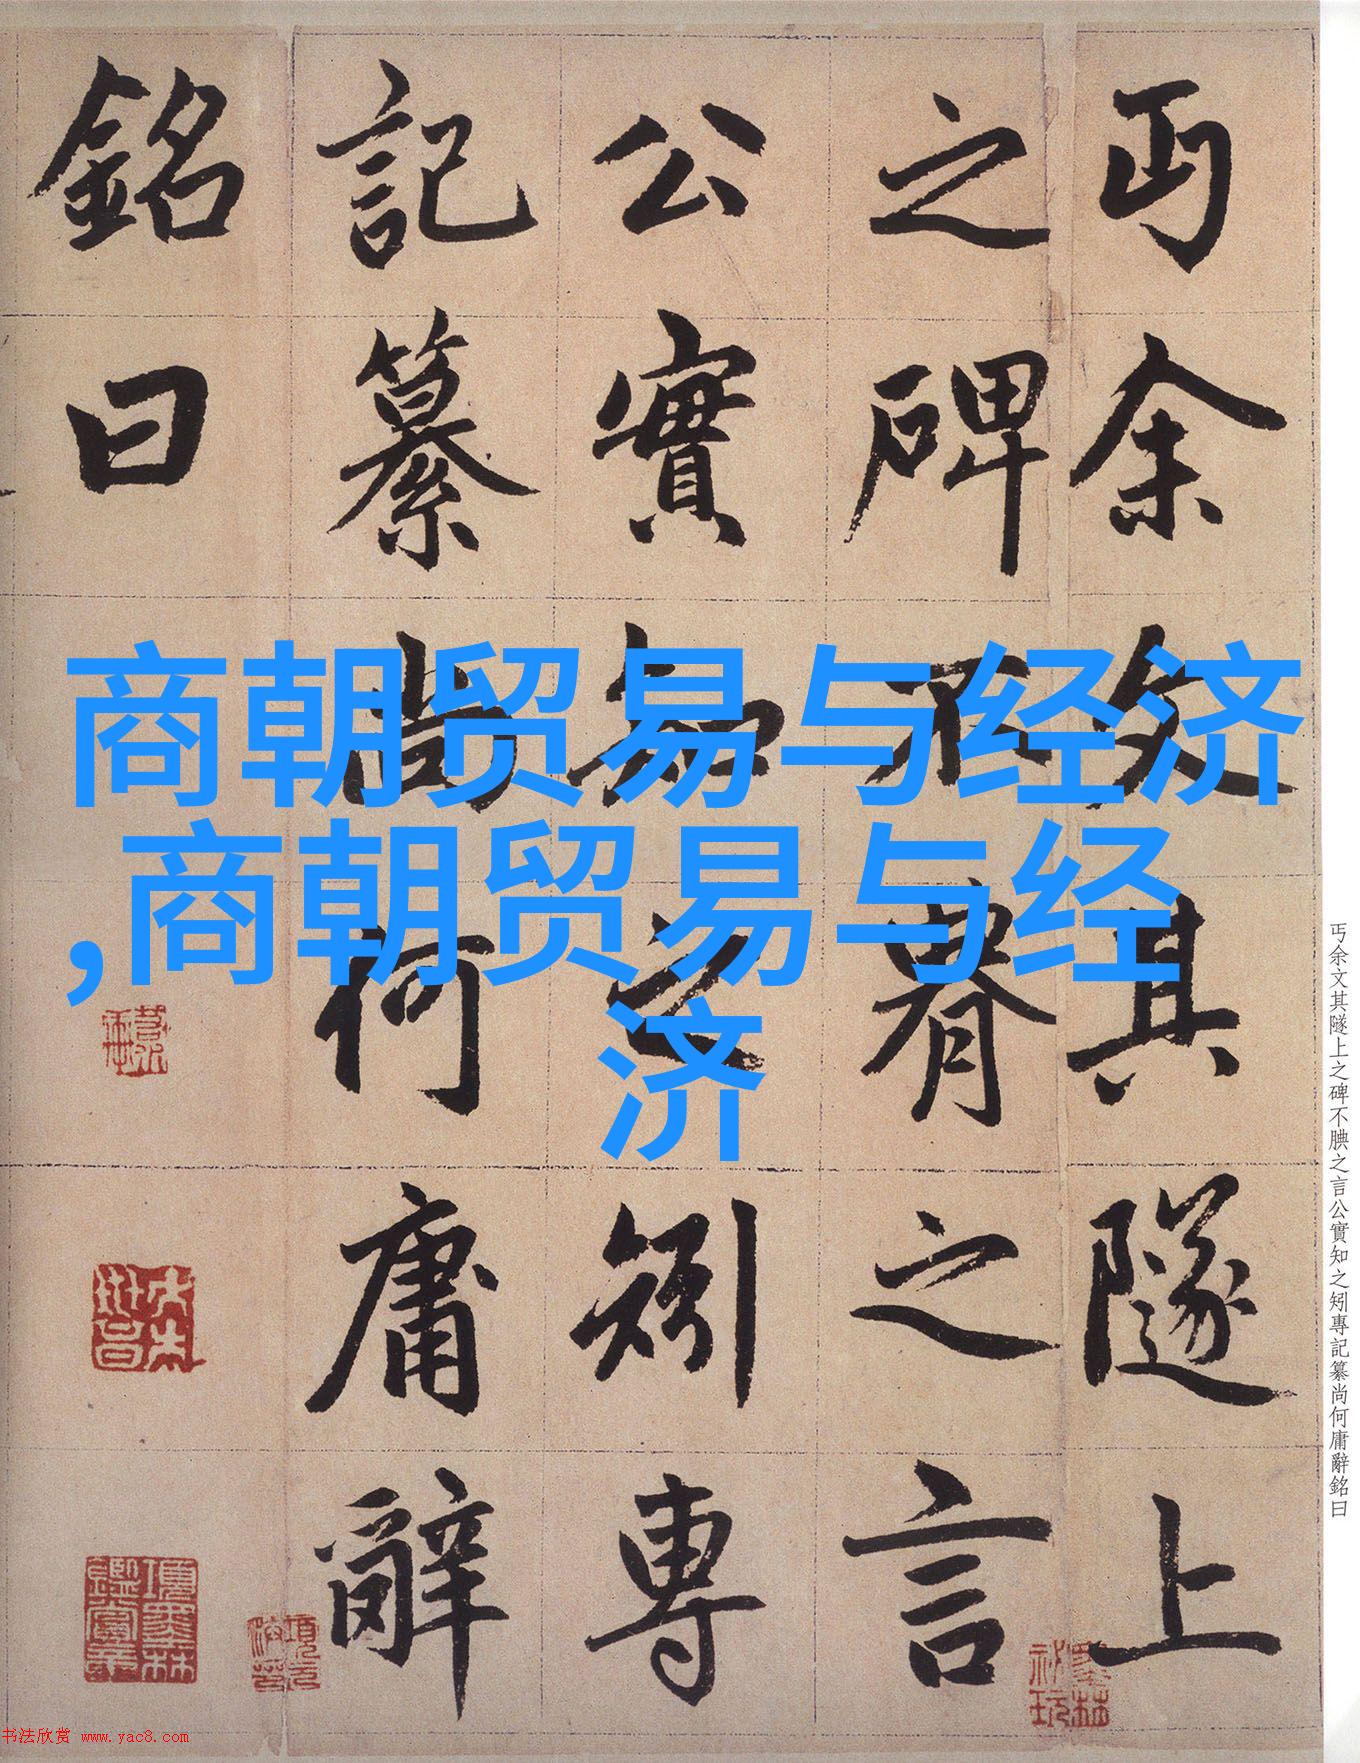 商朝贸易与经济
,商朝贸易与经
济
丐余文其隧上
之碑不腆之言
公實知之矧專
記纂尚何庸辭
銘曰
丐余文其隧上之碑不腆之言公實知之矧專記纂尚何庸辭銘曰
項墨林鑑賞章
墨林祕玩
书法欣赏 www.yac8.com